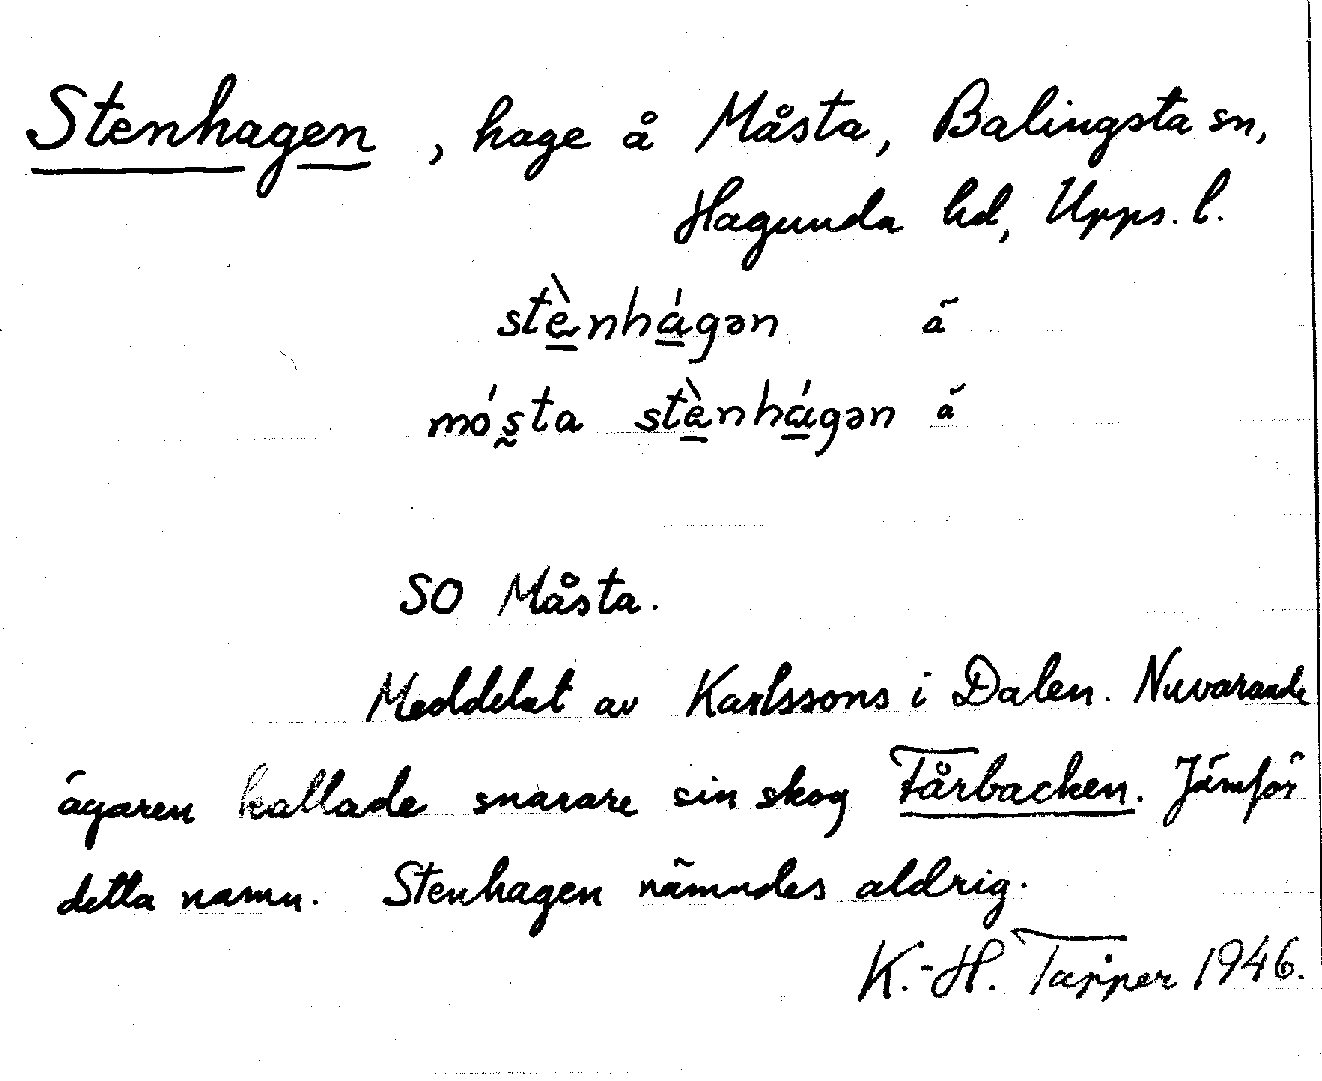 Stenhagen, hage å Måsta, Balingsta sn,
Hagunda hd, Upps. l.
stènhágən ä
mósta stènhágən ä
SO Måsta.
Meddelat av Karlssons i Dalen. Nuvarande
ägaren kallade snarare sin skog Fårbacken. Jämför
detta namn. Stenhagen nämndes aldrig.
K.-H. Tapper 1946.